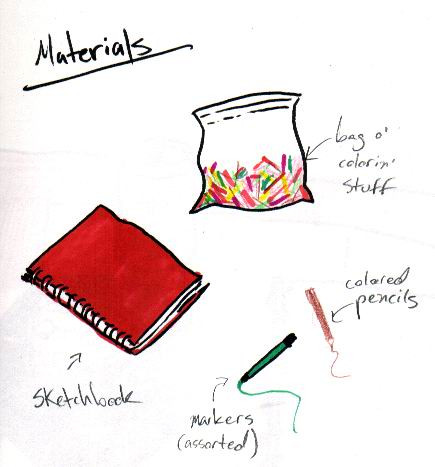 Materials
bag o'
colorin'
stuff
colored
pencils
sketchbook
markers
(assorted)